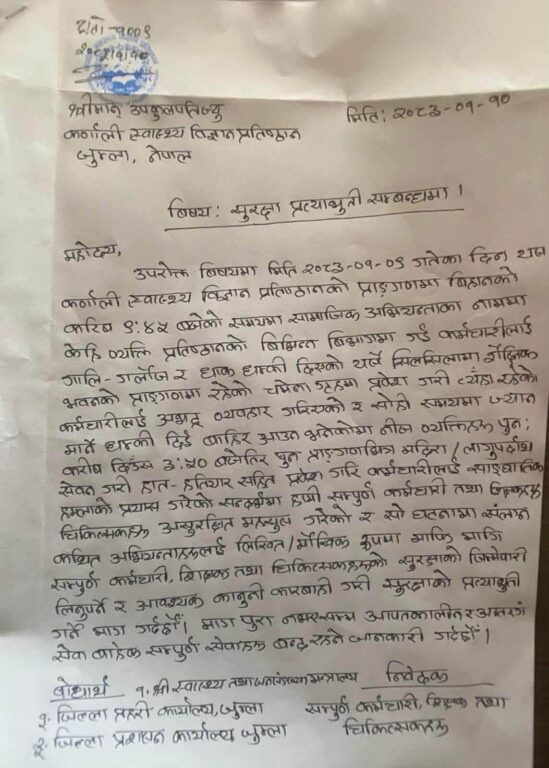 दर्ता -१००९
श्रीमान् उपकुलपतिज्यु
मिति: २०८३-०१-१०
कर्णाली स्वास्थ्य विज्ञान प्रतिष्ठान
जुम्ला, नेपाल
बिषय: सुरक्षा प्रत्याभुती सम्बन्धमा।
महोदय,
उपरोक्त बिषयमा मिति २०८३-०१-०९ गतेका दिन यस
कर्णाली स्वास्थ्य विज्ञान प्रतिष्ठानको प्राङ्गणमा बिहानको
करिब ९:४५ बजेको समयमा सामाजिक अभियन्ताका नाममा
केहि व्यक्ति प्रतिष्ठानको बिभिन्न बिभागमा गई कर्मचारीलाई
गालि-गलौज र धाक धम्की दिएको यसै सिलसिलामा शैक्षिक
भवनको प्राङ्गणमा रहेको चमेना गृहमा प्रवेश गरी त्यँहा रहेको
कर्मचारीलाई अभद्र व्यवहार गरिएको र सोही समयमा ज्यान
मार्ने धम्की दिई बाहिर आउन भनेकोमा नीज व्यक्तिहरु पुन:
करीब दिउँस ३:५० बजेतिर पुन प्राङ्गणभित्र मदिरा/लागुपर्दाथ
सेवन गरी हात-हतियार सहित प्रवेश गरि कर्मचारीलाई साङ्घातिक
हमलाको प्रयास गरेको सन्दर्भमा हामी सम्पुर्ण कर्मचारी तथा शिक्षकहरु
चिकित्सकहरु असुरक्षित महसुस गरेको र सो घटनामा संलग्न
कथित अभियन्ताहरुलाई लिखित/मौखिक रुपमा माफि मागि
सम्पुर्ण कर्मचारी, शिक्षक तथा चिकित्सकहरुको सुरक्षाको जिम्मेवारी
लिनुपर्ने र आवश्यक कानुनी कारबाही गरी सुरक्षाको प्रत्याभुती
गर्न माग गर्दछौँ। माग पुरा नभएसम्म आपतकालीन र अन्तरंग
सेवा बाहेक सम्पुर्ण सेवाहरु बन्द रहने जानकारी गर्दछौँ।
बोधार्थ १. श्री स्वास्थ्य तथा जनसंख्या मन्त्रालय
निवेदक
२. जिल्ला प्रहरी कार्यालय, जुम्ला
सम्पुर्ण कर्मचारी, शिक्षक तथा
३. जिल्ला प्रशासन कार्यालय जुम्ला
चिकित्सकहरु